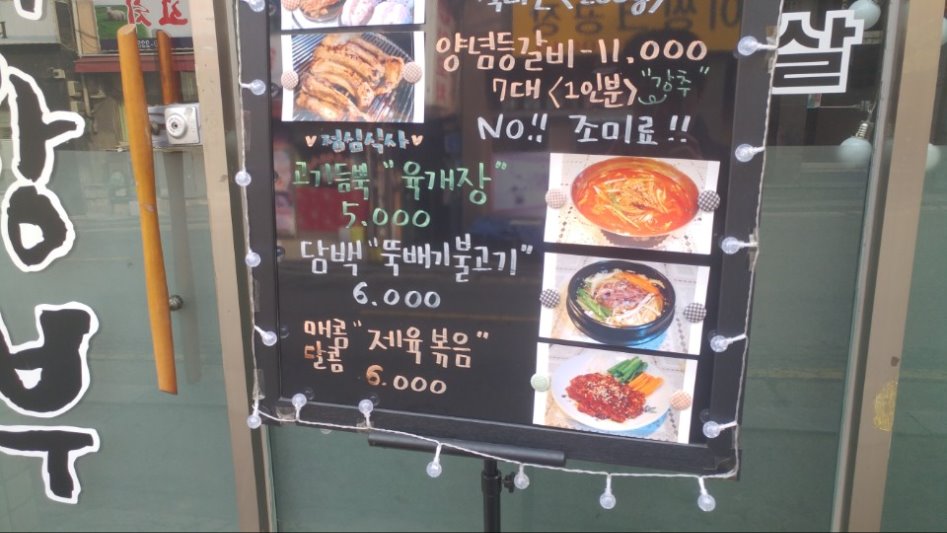 양념등갈비-11,000
7대 <1인분> "강추"
NO!! 조미료!!
♥점심식사♥
고기듬뿍 "육개장"
5.000
담백 "뚝배기불고기"
6.000
매콤
달콤 "제육볶음"
6.000
살